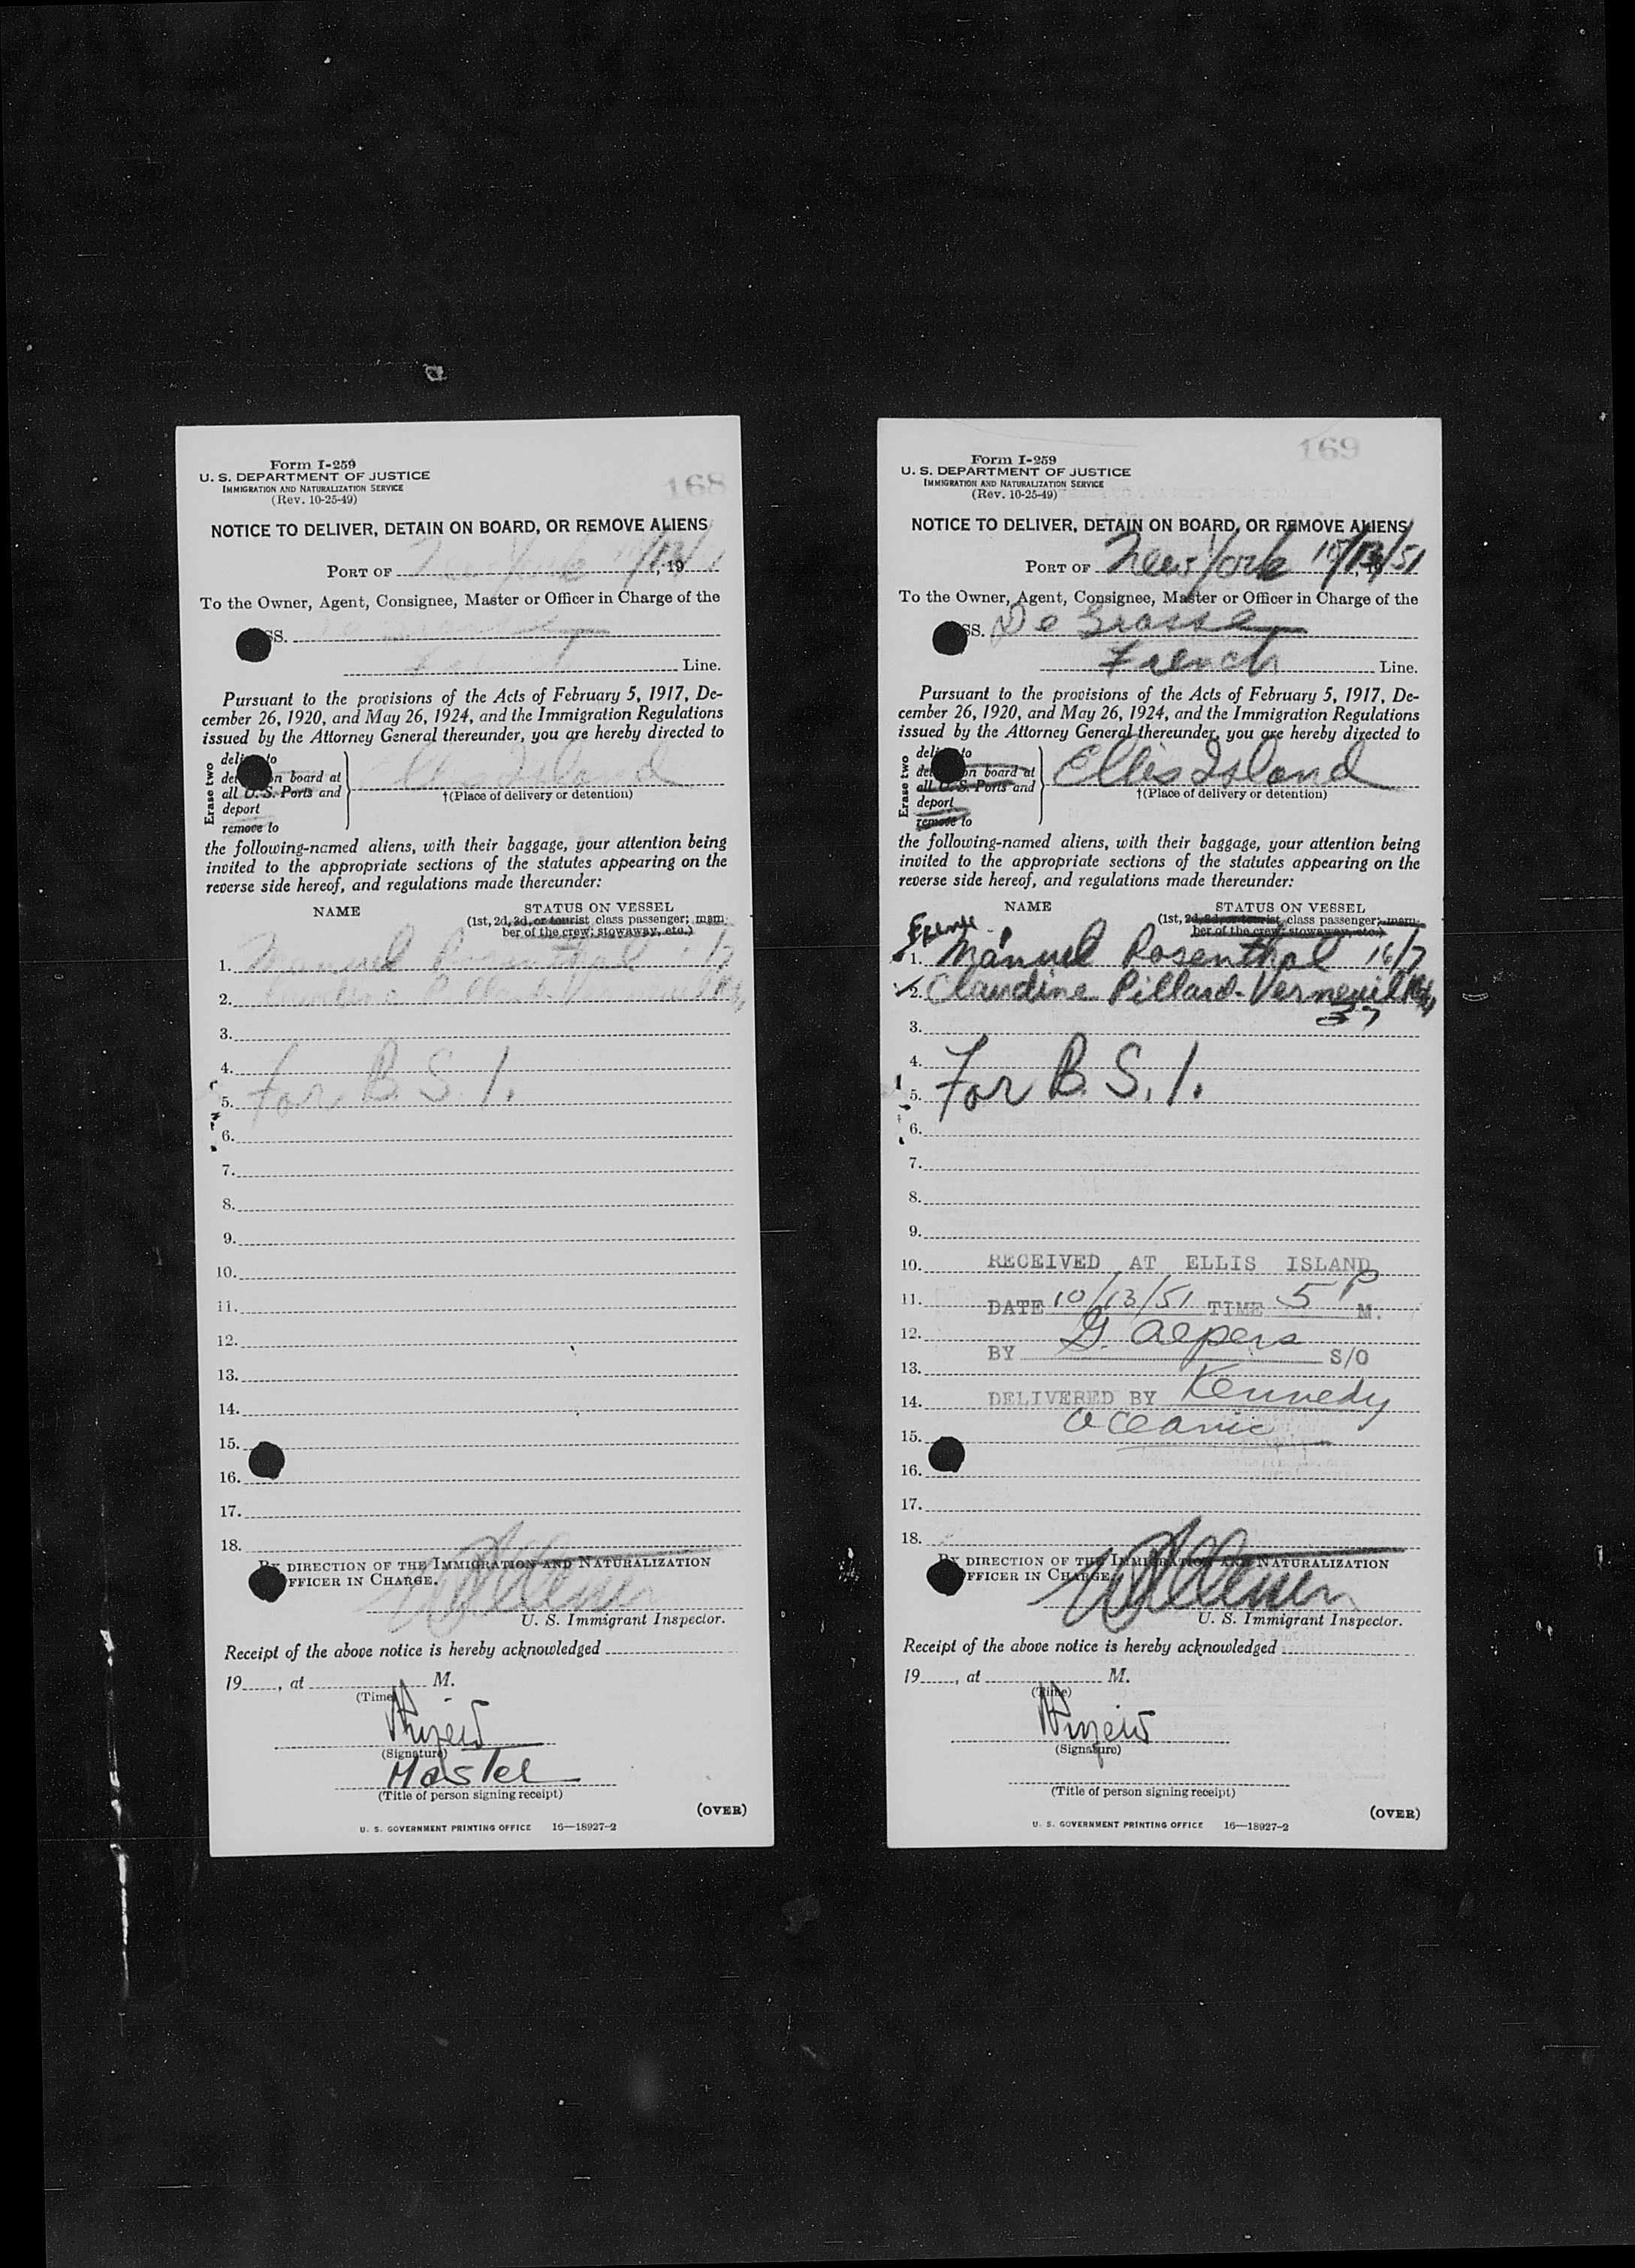 168
Form I-259
U. S. DEPARTMENT OF JUSTICE
IMMIGRATION AND NATURALIZATION SERVICE
(Rev. 10-25-49)
NOTICE TO DELIVER, DETAIN ON BOARD, OR REMOVE ALIENS
PORT OF New York 10/13/, 19
To the Owner, Agent, Consignee, Master or Officer in Charge of the
SS. De Grasse
French Line.
Pursuant to the provisions of the Acts of February 5, 1917, De-
cember 26, 1920, and May 26, 1924, and the Immigration Regulations
issued by the Attorney General thereunder, you are hereby directed to
Erase two
deliver to
detain on board at
all U. S. Ports and
deport
remove to
Ellis Island
†(Place of delivery or detention)
the following-named aliens, with their baggage, your attention being
invited to the appropriate sections of the statutes appearing on the
reverse side hereof, and regulations made thereunder:
NAME STATUS ON VESSEL
(1st, 2d, 3d, or tourist class passenger; mem-
ber of the crew; stowaway, etc.)
1. Manuel Rosenthal
2. Claudine Pillard-Verneuil
3.
4.
For B. S. I.
5.
6.
7.
8.
9.
10.
11.
12.
13.
14.
15.
16.
17.
18.
BY DIRECTION OF THE IMMIGRATION AND NATURALIZATION
OFFICER IN CHARGE.
U. S. Immigrant Inspector.
Receipt of the above notice is hereby acknowledged
19, at M.
(Time)
(Signature)
Master
(Title of person signing receipt)
(OVER)
U. S. GOVERNMENT PRINTING OFFICE 16—18927-2
169
Form I-259
U. S. DEPARTMENT OF JUSTICE
IMMIGRATION AND NATURALIZATION SERVICE
(Rev. 10-25-49)
NOTICE TO DELIVER, DETAIN ON BOARD, OR REMOVE ALIENS
PORT OF New York 10/13/51, 19
To the Owner, Agent, Consignee, Master or Officer in Charge of the
SS. De Grasse
French Line.
Pursuant to the provisions of the Acts of February 5, 1917, De-
cember 26, 1920, and May 26, 1924, and the Immigration Regulations
issued by the Attorney General thereunder, you are hereby directed to
Erase two
deliver to
detain on board at
all U. S. Ports and
deport
remove to
Ellis Island
†(Place of delivery or detention)
the following-named aliens, with their baggage, your attention being
invited to the appropriate sections of the statutes appearing on the
reverse side hereof, and regulations made thereunder:
NAME STATUS ON VESSEL
(1st, 2d, 3d, or tourist class passenger; mem-
ber of the crew; stowaway, etc.)
1. Manuel Rosenthal 16/7
2. Claudine Pillard-Verneuil
37
3.
4.
For B. S. I.
5.
6.
7.
8.
9.
10. RECEIVED AT ELLIS ISLAND
11. DATE 10/13/51 TIME 5 P M.
12.
BY G. Alpers S/O
13.
14. DELIVERED BY Kennedy
Oceanic
15.
16.
17.
18.
BY DIRECTION OF THE IMMIGRATION AND NATURALIZATION
OFFICER IN CHARGE.
U. S. Immigrant Inspector.
Receipt of the above notice is hereby acknowledged
19, at M.
(Time)
(Signature)
(Title of person signing receipt)
(OVER)
U. S. GOVERNMENT PRINTING OFFICE 16—18927-2